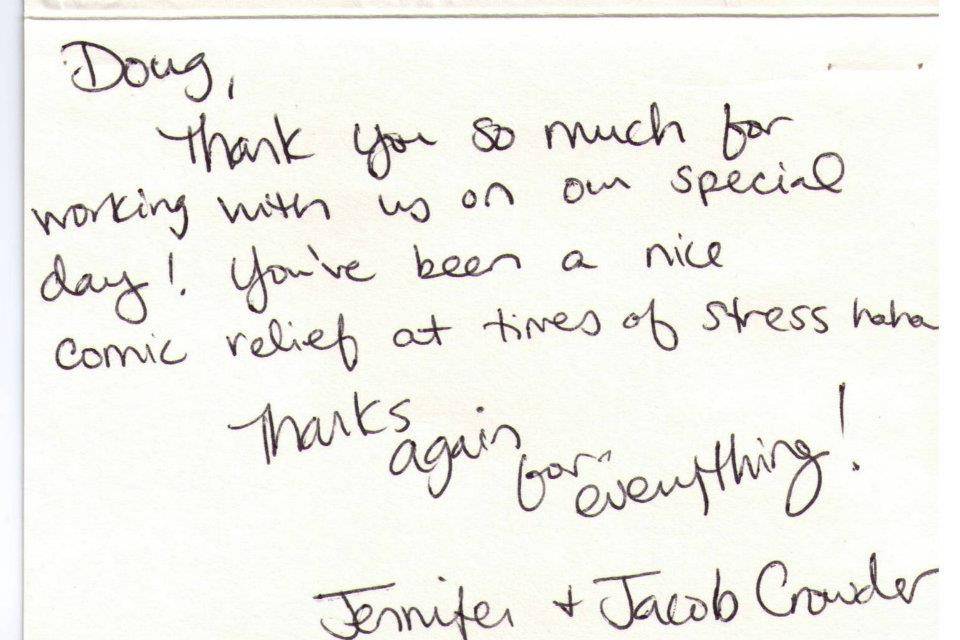 Doug,
Thank you so much for
working with us on our special
day! You've been a nice
comic relief at times of stress haha
Thanks again for everything!
Jennifer + Jacob Crowder